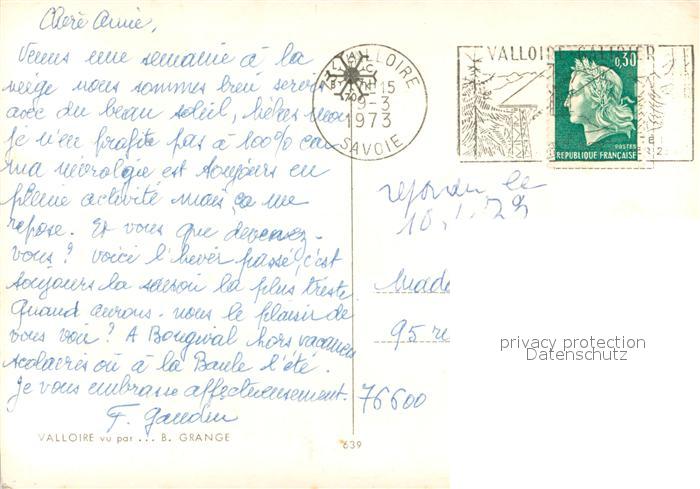 Chère Amie,
Venus une semaine à la
neige nous sommes bien servis
avec du beau soleil, hélas moi
je n'en profite pas à 100% car
ma névralgie est toujours en
pleine activité mais ça me
repose. Et vous que devenez-
vous ? Voici l'hiver passé, c'est
toujours la saison la plus triste.
Quand aurons-nous le plaisir de
vous voir ? A Bougival hors vacances
scolaires où à la Baule l'été.
Je vous embrasse affectueusement.
F.
VALLOIRE vu par ... B. GRANGE
639
VALLOIRE
15
9-3
1973
SAVOIE
VALLOIRE GALIBIER
0,30
POSTES
REPUBLIQUE FRANÇAISE
répondu le
Mada
95 r
76600
privacy protection
Datenschutz